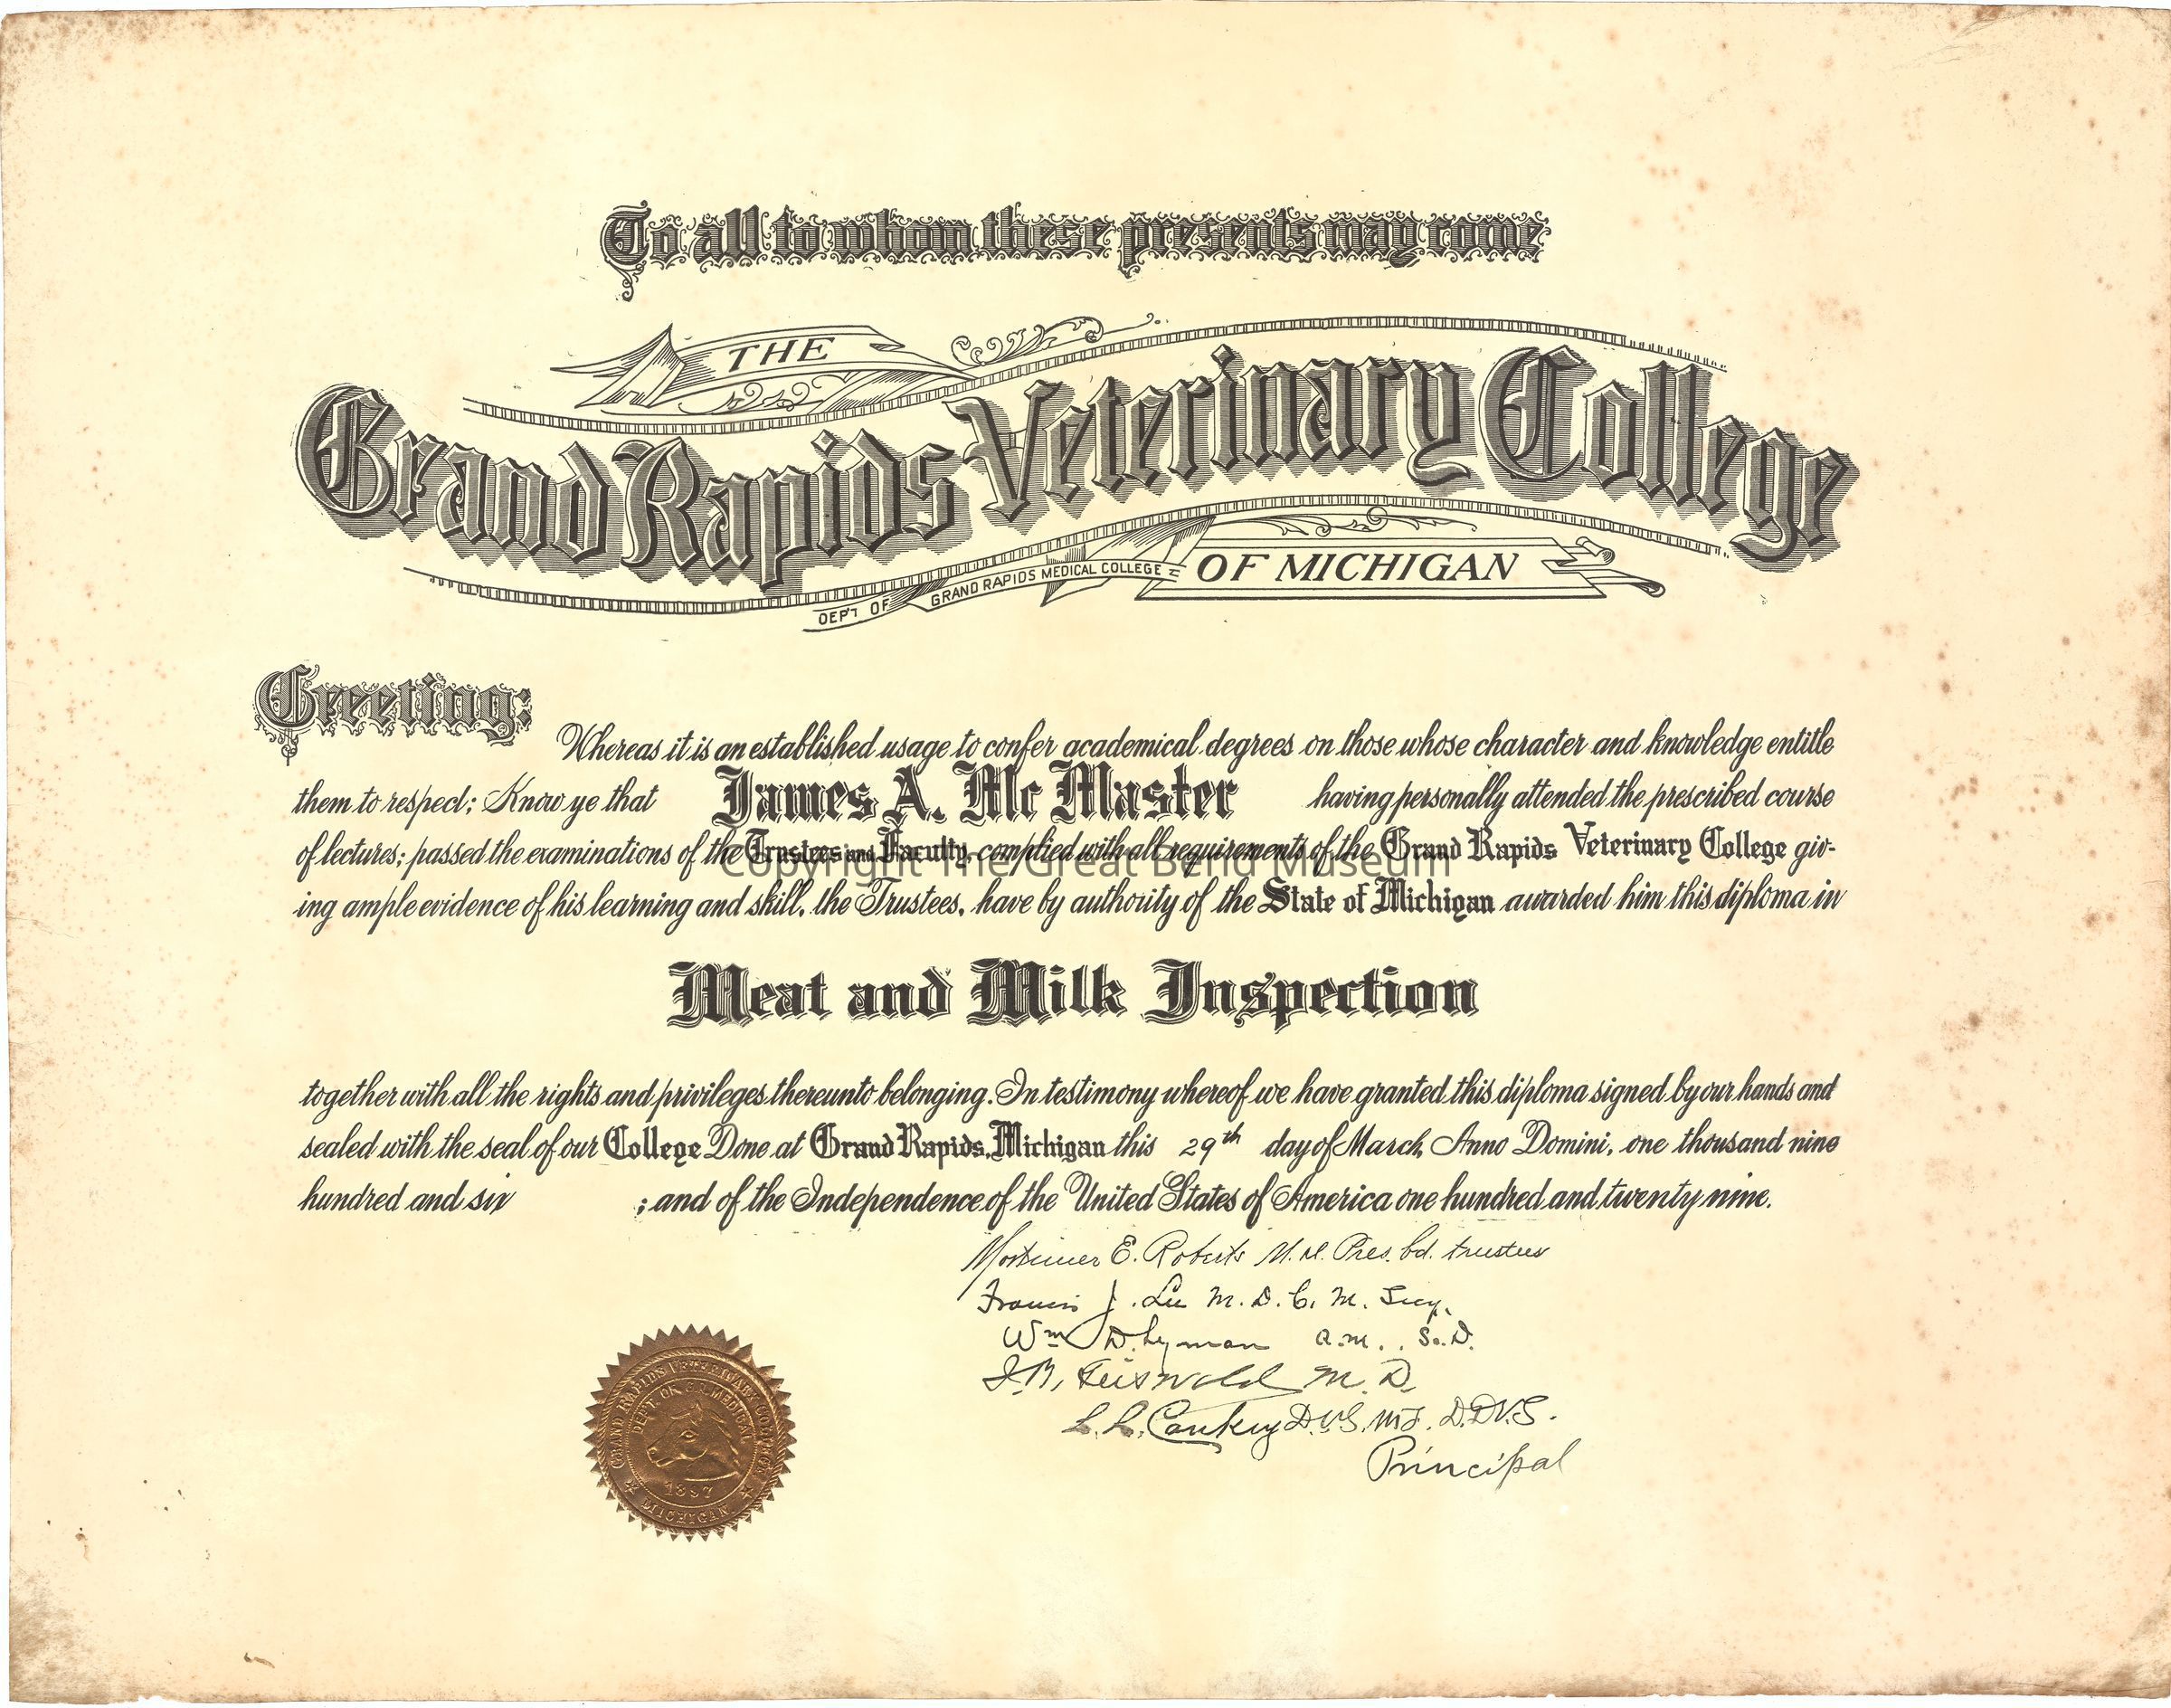 To all to whom these presents may come
THE
Grand Rapids Veterinary College
DEP'T OF GRAND RAPIDS MEDICAL COLLEGE
OF MICHIGAN
Greeting:
Whereas it is an established usage to confer academical degrees on those whose character and knowledge entitle
them to respect; Know ye that James A. Mc Master having personally attended the prescribed course
of lectures; passed the examinations of the Trustees and Faculty, complied with all requirements of the Grand Rapids Veterinary College giv-
Copyright The Great Bend Museum
ing ample evidence of his learning and skill, the Trustees, have by authority of the State of Michigan awarded him this diploma in
Meat and Milk Inspection
together with all the rights and privileges thereunto belonging. In testimony whereof we have granted this diploma signed by our hands and
sealed with the seal of our College Done at Grand Rapids, Michigan this 29th day of March Anno Domini, one thousand nine
hundred and six ; and of the Independence of the United States of America one hundred and twenty nine.
Mortimer E. Roberts M.D. Pres. bd. trustees
Francis J. Lee M.D.C.M. Secy.
Wm D. Lyman A.M., Sc.D.
J.B. Griswold M.D.
L.L. Conkey D.V.S. D.D.V.S.
Principal
GRAND RAPIDS VETERINARY COLLEGE
DEPT. OF G.R. MEDICAL
1897
MICHIGAN